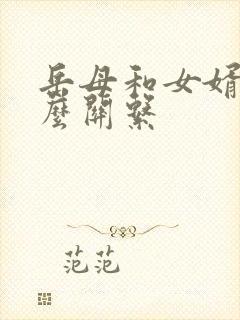 岳母和女婿
麼關繫
范范